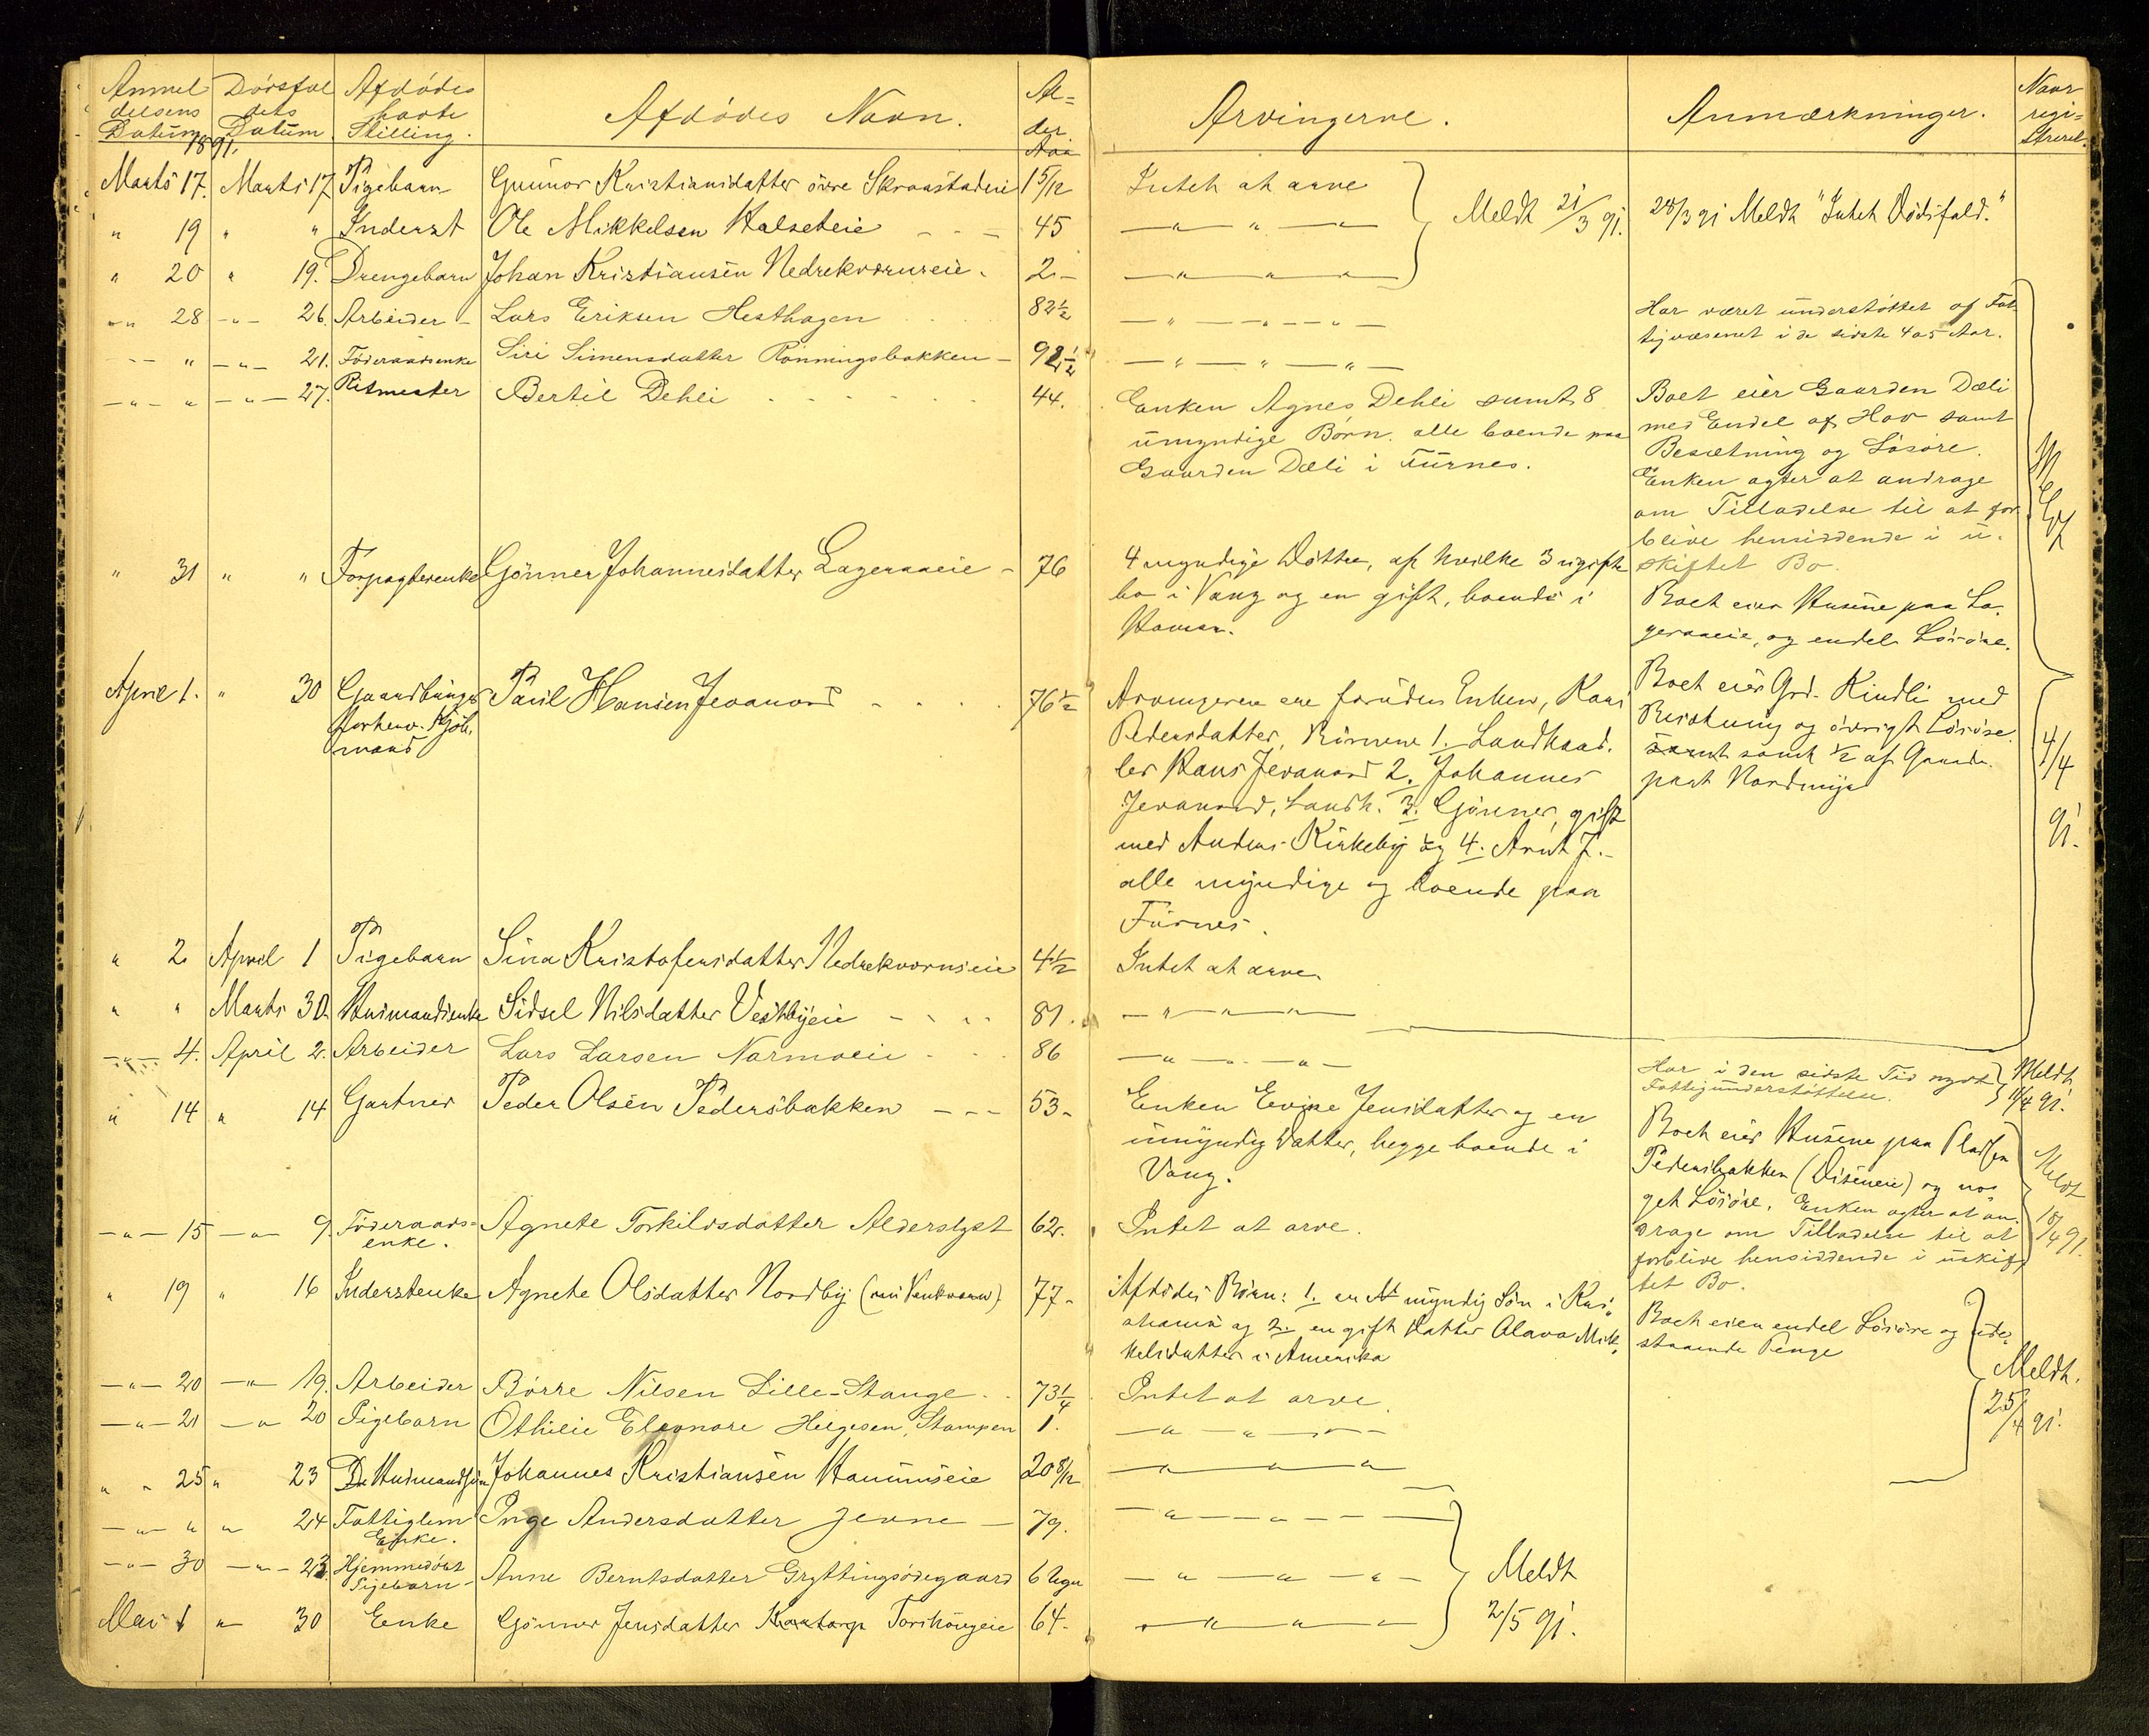 Anmel Dødsfal Afdødes
delsens dets havte
Datum Datum Stilling.
Afdødes Navn.
Al=
der
Aar
Arvingerne.
Anmærkninger.
Naar
regi=
streret.
1891.
Marts 17. Marts 17 Pigebarn Gunnor Kristiansdatter øvre Skraastadeie 1 5/12 Intet at arve
" 19 " " Inderst Ole Mikkelsen Halseteie - - - 45 — " — " —
Meldt 21/3 91. 28/3 91 Meldt "Intet Dødsfald."
" 20 " 19. Drengebarn Johan Kristiansen Nedrekværnseie. 2 — — " — " — " —
— " — 28 — " — 26. Arbeider Lars Eriksen Hesthagen 82½ — " — " — " —
Har været understøttet af Fat
tigvæsenet i de sidste 4 a 5 Aar.
— " — " — " — 21. Føderaadsenke Siri Simensdatter Rønningsbakken 92½ — " — " — " —
— " — " — " — 27. Ritmester Bertil Dehli 44.
Enken Agnes Dehli samt 8
umyndige Børn, alle boende paa
Gaarden Dæli i Furnes.
Boet eier Gaarden Dæli
med Endel af Hov samt
Besætning og Løsøre.
Enken agter at andrage
om Tilladelse til at for
blive hensiddende i u-
skiftet Bo.
" 31 " " Forpagterenke Gønner Johannesdatter Lageraaeie 76
4 myndige Døttre, af hvilke 3 ugifte
bo i Vang og en gift, boende i
Hamar.
Boet eier Husene paa La-
geraaeie, og endel Løsøre.
April 1. " 30 Gaardbruger
forhenv. Kjøb-
mand
Paul Hansen Jevanord 76½
Arvingerne ere foruden Enken, Kari
Pedersdatter, Børnene 1. Landhand-
ler Hans Jevanord 2. Johannes
Jevanord, Landh. 3. Gønner, gift
med Anders Kirkeby og 4. Arnt J.
alle myndige og boende paa
Furnes.
Boet eier Grd. Kindli med
Besætning og øvrigt Løsøre
samt samt ½ af Gaarde-
part Nordmyr
4/4
91.
" 2 April 1 Pigebarn Sina Kristofersdatter Nedrekværnseie 4½ Intet at arve
" " Marts 30. Husmandsenke Sidsel Nilsdatter Vestbyeie 81. — " — " — " —
— " — 4. April 2. Arbeider Lars Larsen Narmoeie 86 — " — " — " —
Har i den sidste Tid nydt
Fattigunderstøttelse.
Meldt
11/4 91.
" 14 " 14 Gartner Peder Olsen Pedersbakken - - - 53-
Enken Evine Jensdatter og en
umyndig Datter, begge boende i
Vang.
Boet eier Husene paa Pladsen
Pedersbakken (Diseneie) og no-
get Løsøre. Enken agter at an-
drage om Tilladelse til at
forblive hensiddende i uskif-
tet Bo.
Meldt
18/4 91.
— " — 15 — " — 9. Føderaads-
enke.
Agnete Torkildsdatter Alderslyst 62. Intet at arve.
" 19 " 16 Inderstenke Agnete Olsdatter Nordby 77-
Afdødes Børn: 1. en myndig Søn i Kri-
stiania og 2. en gift Datter Olava Mik-
kelsdatter i Amerika
Boet eier endel Løsøre og ude-
staaende Penge
Meldt.
25/4 91.
— " — 20 — " — 19. Arbeider Børre Nilsen Lille-Stange 73¼ Intet at arve.
— " — 21 — " 20 Pigebarn Othilie Eleonore Helgesen, Stampen 1. — " — " — " —
" " 25 " 23 Husmandssøn Johannes Kristiansen Hammseie 20 8/12 — " — " — " —
— " — " " 24 Fattiglem
Enke.
Inge Andersdatter Jevne 79. — " — " — —
— " — 30 — " — 23. Hjemmedøbt
Pigebarn
Anne Berntsdatter Gryttingsødegaard 6 Uger — " — " — " —
Mai 1 " 30 Enke Gønner Jensdatter Torshougeie 64- — " — " — " —
Meldt
2/5 91.